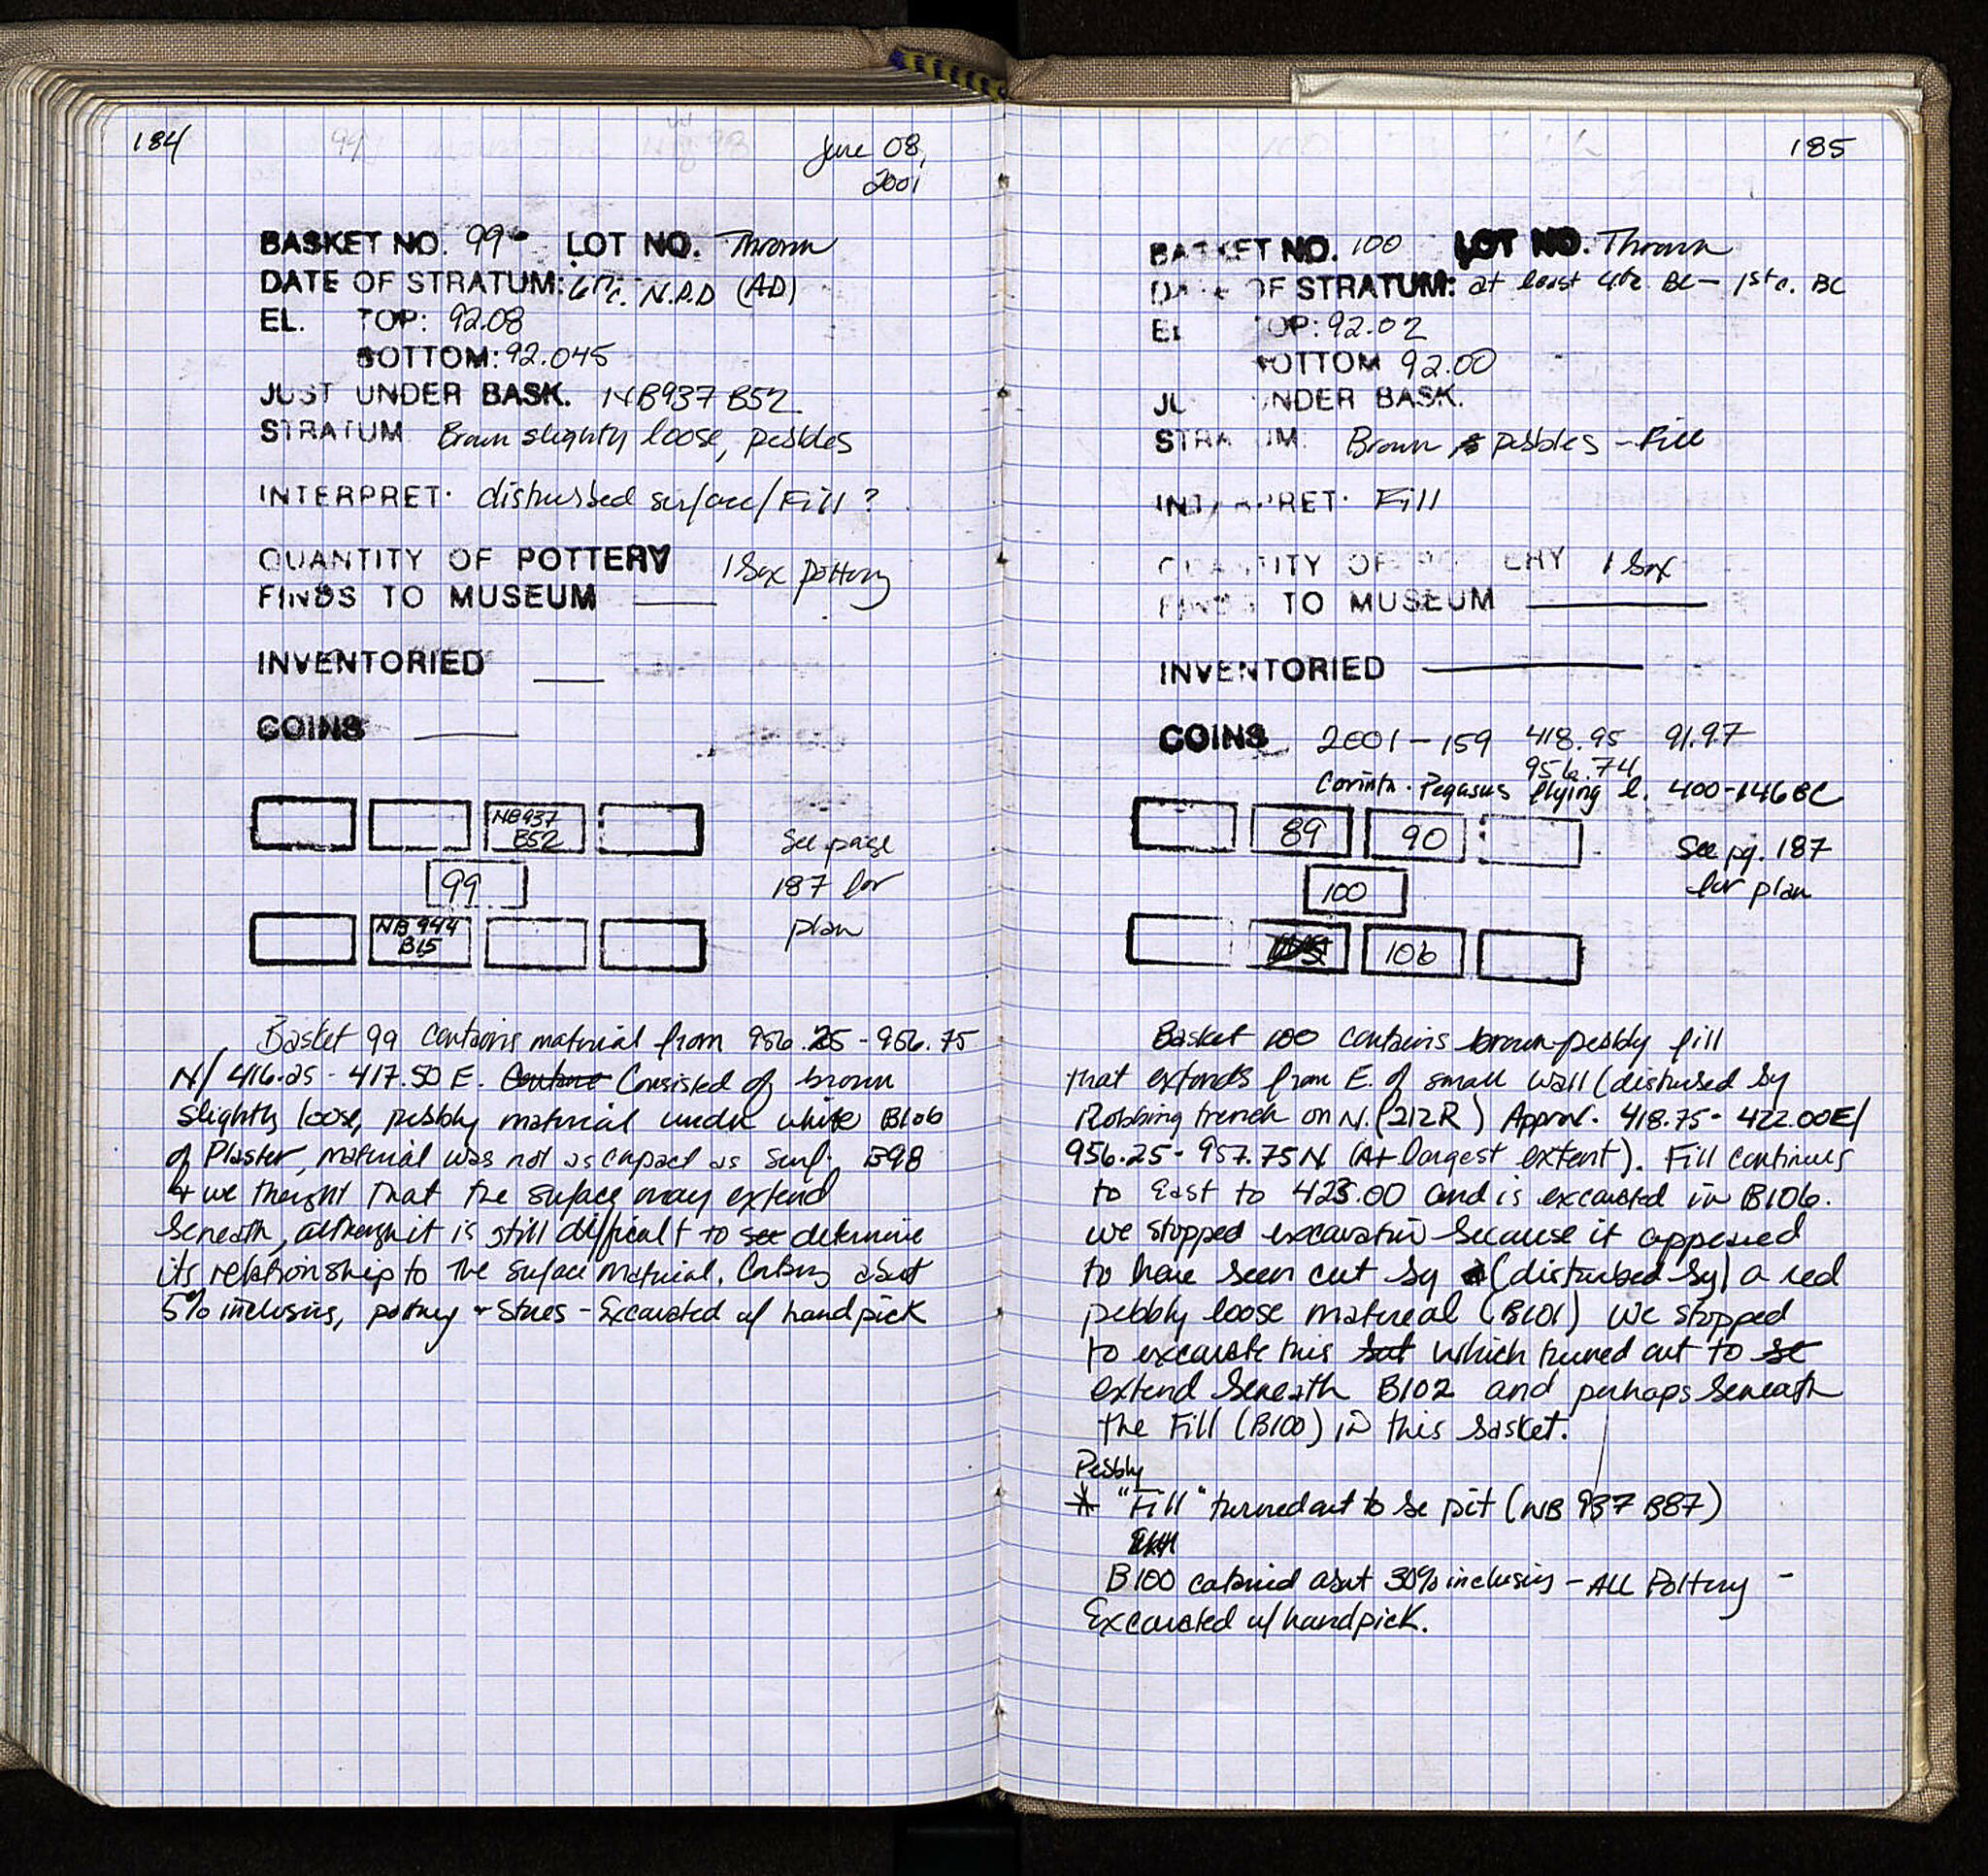 184
June 08,
2001
BASKET NO. 99 LOT NO. Thrown
DATE OF STRATUM: 6th c. N.P.D (AD)
EL. TOP: 92.08
BOTTOM: 92.045
JUST UNDER BASK. NB937 B52
STRATUM Brown slighty loose, pebbles
INTERPRET. disturbed surface/Fill?
QUANTITY OF POTTERY 1 box pottery
FINDS TO MUSEUM
INVENTORIED
COINS
NB937
B52
99
NB 944
B15
See page
187 for
plan
Basket 99 contains material from 956.25 - 956.75
N/ 416.25 - 417.50 E. Consisted of brown
slightly loose, pebbly material under white Blob
of Plaster, material was not as compact as surf. B98
+ we thought that the surface may extend
beneath, although it is still difficult to see determine
its relationship to the surface material. about
5% inclusions, pottery + stones - Excavated w/ handpick
185
BASKET NO. 100 LOT NO. Thrown
DATE OF STRATUM: at least 4th BC - 1st c. BC
EL TOP: 92.02
BOTTOM 92.00
JUST UNDER BASK.
STRATUM: Brown pebbles - Fill
INTERPRET. Fill
QUANTITY OF POTTERY 1 box
FINDS TO MUSEUM
INVENTORIED
COINS 2001-159 418.95 91.97
956.74
Corinth. Pegasus flying l. 400-146 BC
89 90
100
106
See pg. 187
for plan
Basket 100 contains brown pebbly fill
that extends from E. of small wall (disturbed by
Robbing trench on N. (212R) Approx. 418.75 - 422.00E/
956.25 - 957.75N (At largest extent). Fill continues
to East to 423.00 and is excavated in B106.
we stopped excavation because it appeared
to have been cut by (disturbed by) a red
pebbly loose material (B101) We stopped
to excavate this but which turned out to be
extend beneath B102 and perhaps beneath
the Fill (B100) in this basket.
Pebbly
* "Fill" turned out to be pit (NB 937 B87)
B100 contained about 30% inclusions - ALL Pottery -
Excavated w/ handpick.